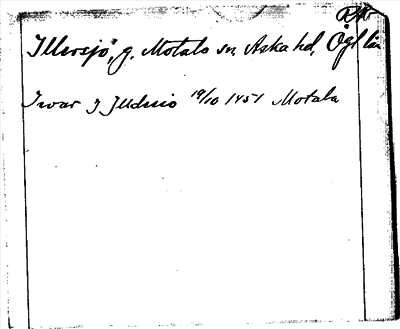 RAP
Illersjö, g. Motala sn, Aska hd, Ögl län
Iwar J Illersiö 19/10 1451 Motala